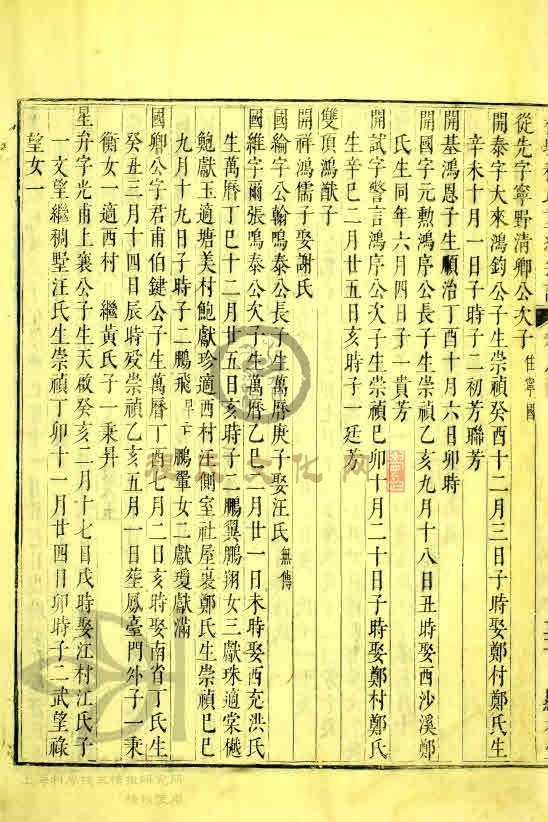 從先字寧野清卿公次子 住寧國
開泰字大來鴻鈞公子生崇禎癸酉十二月三日子時娶鄭村鄭氏生
辛未十月一日子時子二初芳聯芳
開基鴻恩子生順治丁酉十月六日卯時
開國字元勲鴻序公長子生崇禎乙亥九月十八日丑時娶西沙溪鄭
氏生同年六月四日子一貴芳
開試字警言鴻序公次子生崇禎己卯十月二十日子時娶鄭村鄭氏
生辛巳二月廿五日亥時子一廷芳
雙頂鴻猷子
開祥鴻儒子娶謝氏
國綸字公翰鳴泰公長子生萬曆庚子娶汪氏 無傳
國維字爾張鳴泰公次子生萬曆乙巳二月廿一日未時娶西充洪氏
生萬曆丁巳十二月廿五日亥時子二鵬翼鵬翔女三獻珠適棠樾
鮑獻玉適塘美村鮑獻珍適西村汪側室社屋裏鄭氏生崇禎己巳
九月十九日子時子二鵬飛 早亡 鵬鞏女二獻瓊獻滿
國卿公字君甫伯鍵公子生萬曆丁酉七月二日亥時娶南省丁氏生
癸丑三月十四日辰時歿崇禎乙亥五月一日塟鳳臺門外子一秉
衡女一適西村 繼黃氏子一秉昇
星弁字光甫上襄公子生天啟癸亥二月十七日戌時娶江村江氏子
一文望繼稠墅汪氏生崇禎丁卯十一月廿四日卯時子二武望祿
望女一